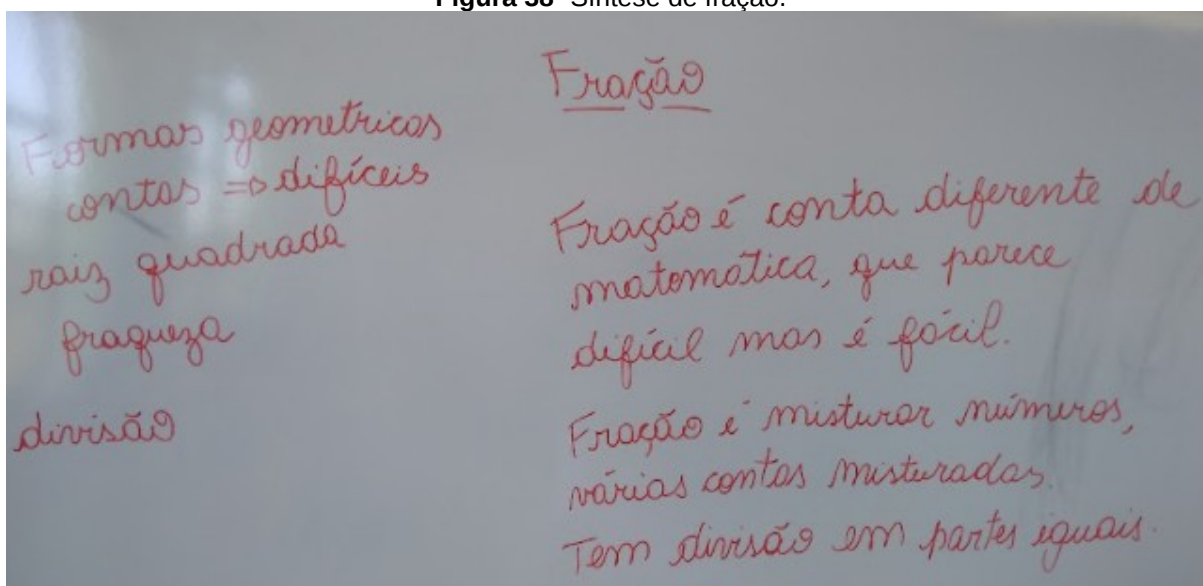 Figura 38- Síntese de fração.
Fração
Formas geometricas
contas => difíceis
raiz quadrada
fraqueza
divisão
Fração é conta diferente de
matemática, que parece
difícil mas é fácil.
Fração é misturar números,
várias contas misturadas.
Tem divisão em partes iguais.